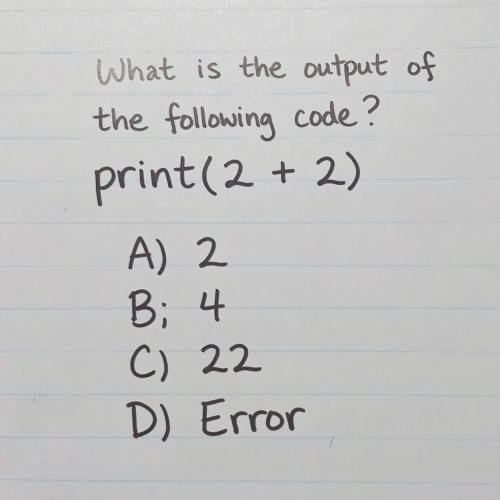 What is the output of
the following code?
print(2 + 2)
A) 2
B; 4
C) 22
D) Error